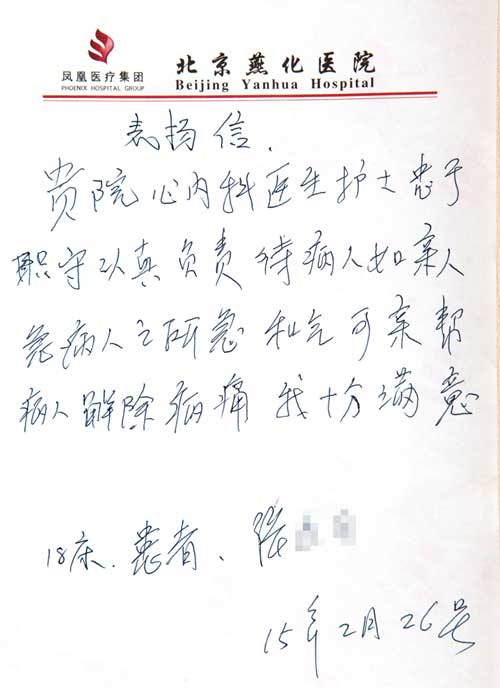 凤凰医疗集团
PHOENIX HOSPITAL GROUP
北京燕化医院
Beijing Yanhua Hospital
表扬信.
贵院心内科医生护士忠于
职守认真负责待病人如亲人
急病人之所急 和气可亲帮
病人解除病痛 我十分满意
18床. 患者、张
15年2月26号